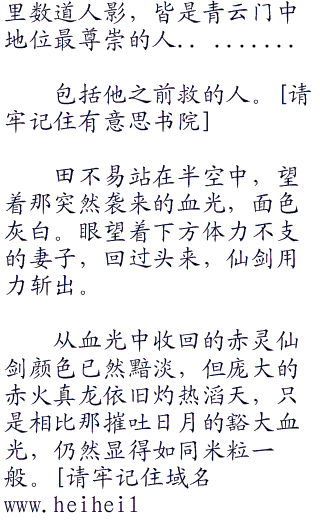 里数道人影，皆是青云门中
地位最尊崇的人.. .......
包括他之前救的人。[请
牢记住有意思书院]
田不易站在半空中，望
着那突然袭来的血光，面色
灰白。眼望着下方体力不支
的妻子，回过头来，仙剑用
力斩出。
从血光中收回的赤灵仙
剑颜色已然黯淡，但庞大的
赤火真龙依旧灼热滔天，只
是相比那摧吐日月的豁大血
光，仍然显得如同米粒一
般。[请牢记住域名
www.heihei1